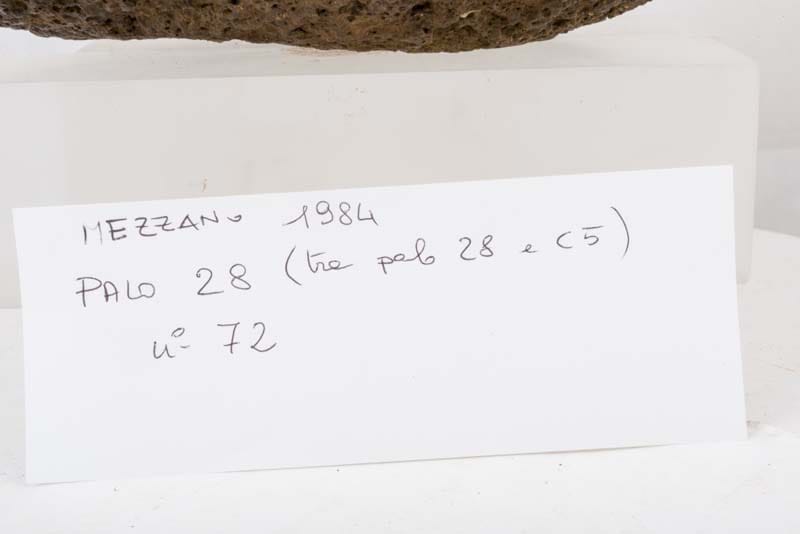 MEZZANO 1984
PALO 28 (tra palo 28 e C5)
n° 72